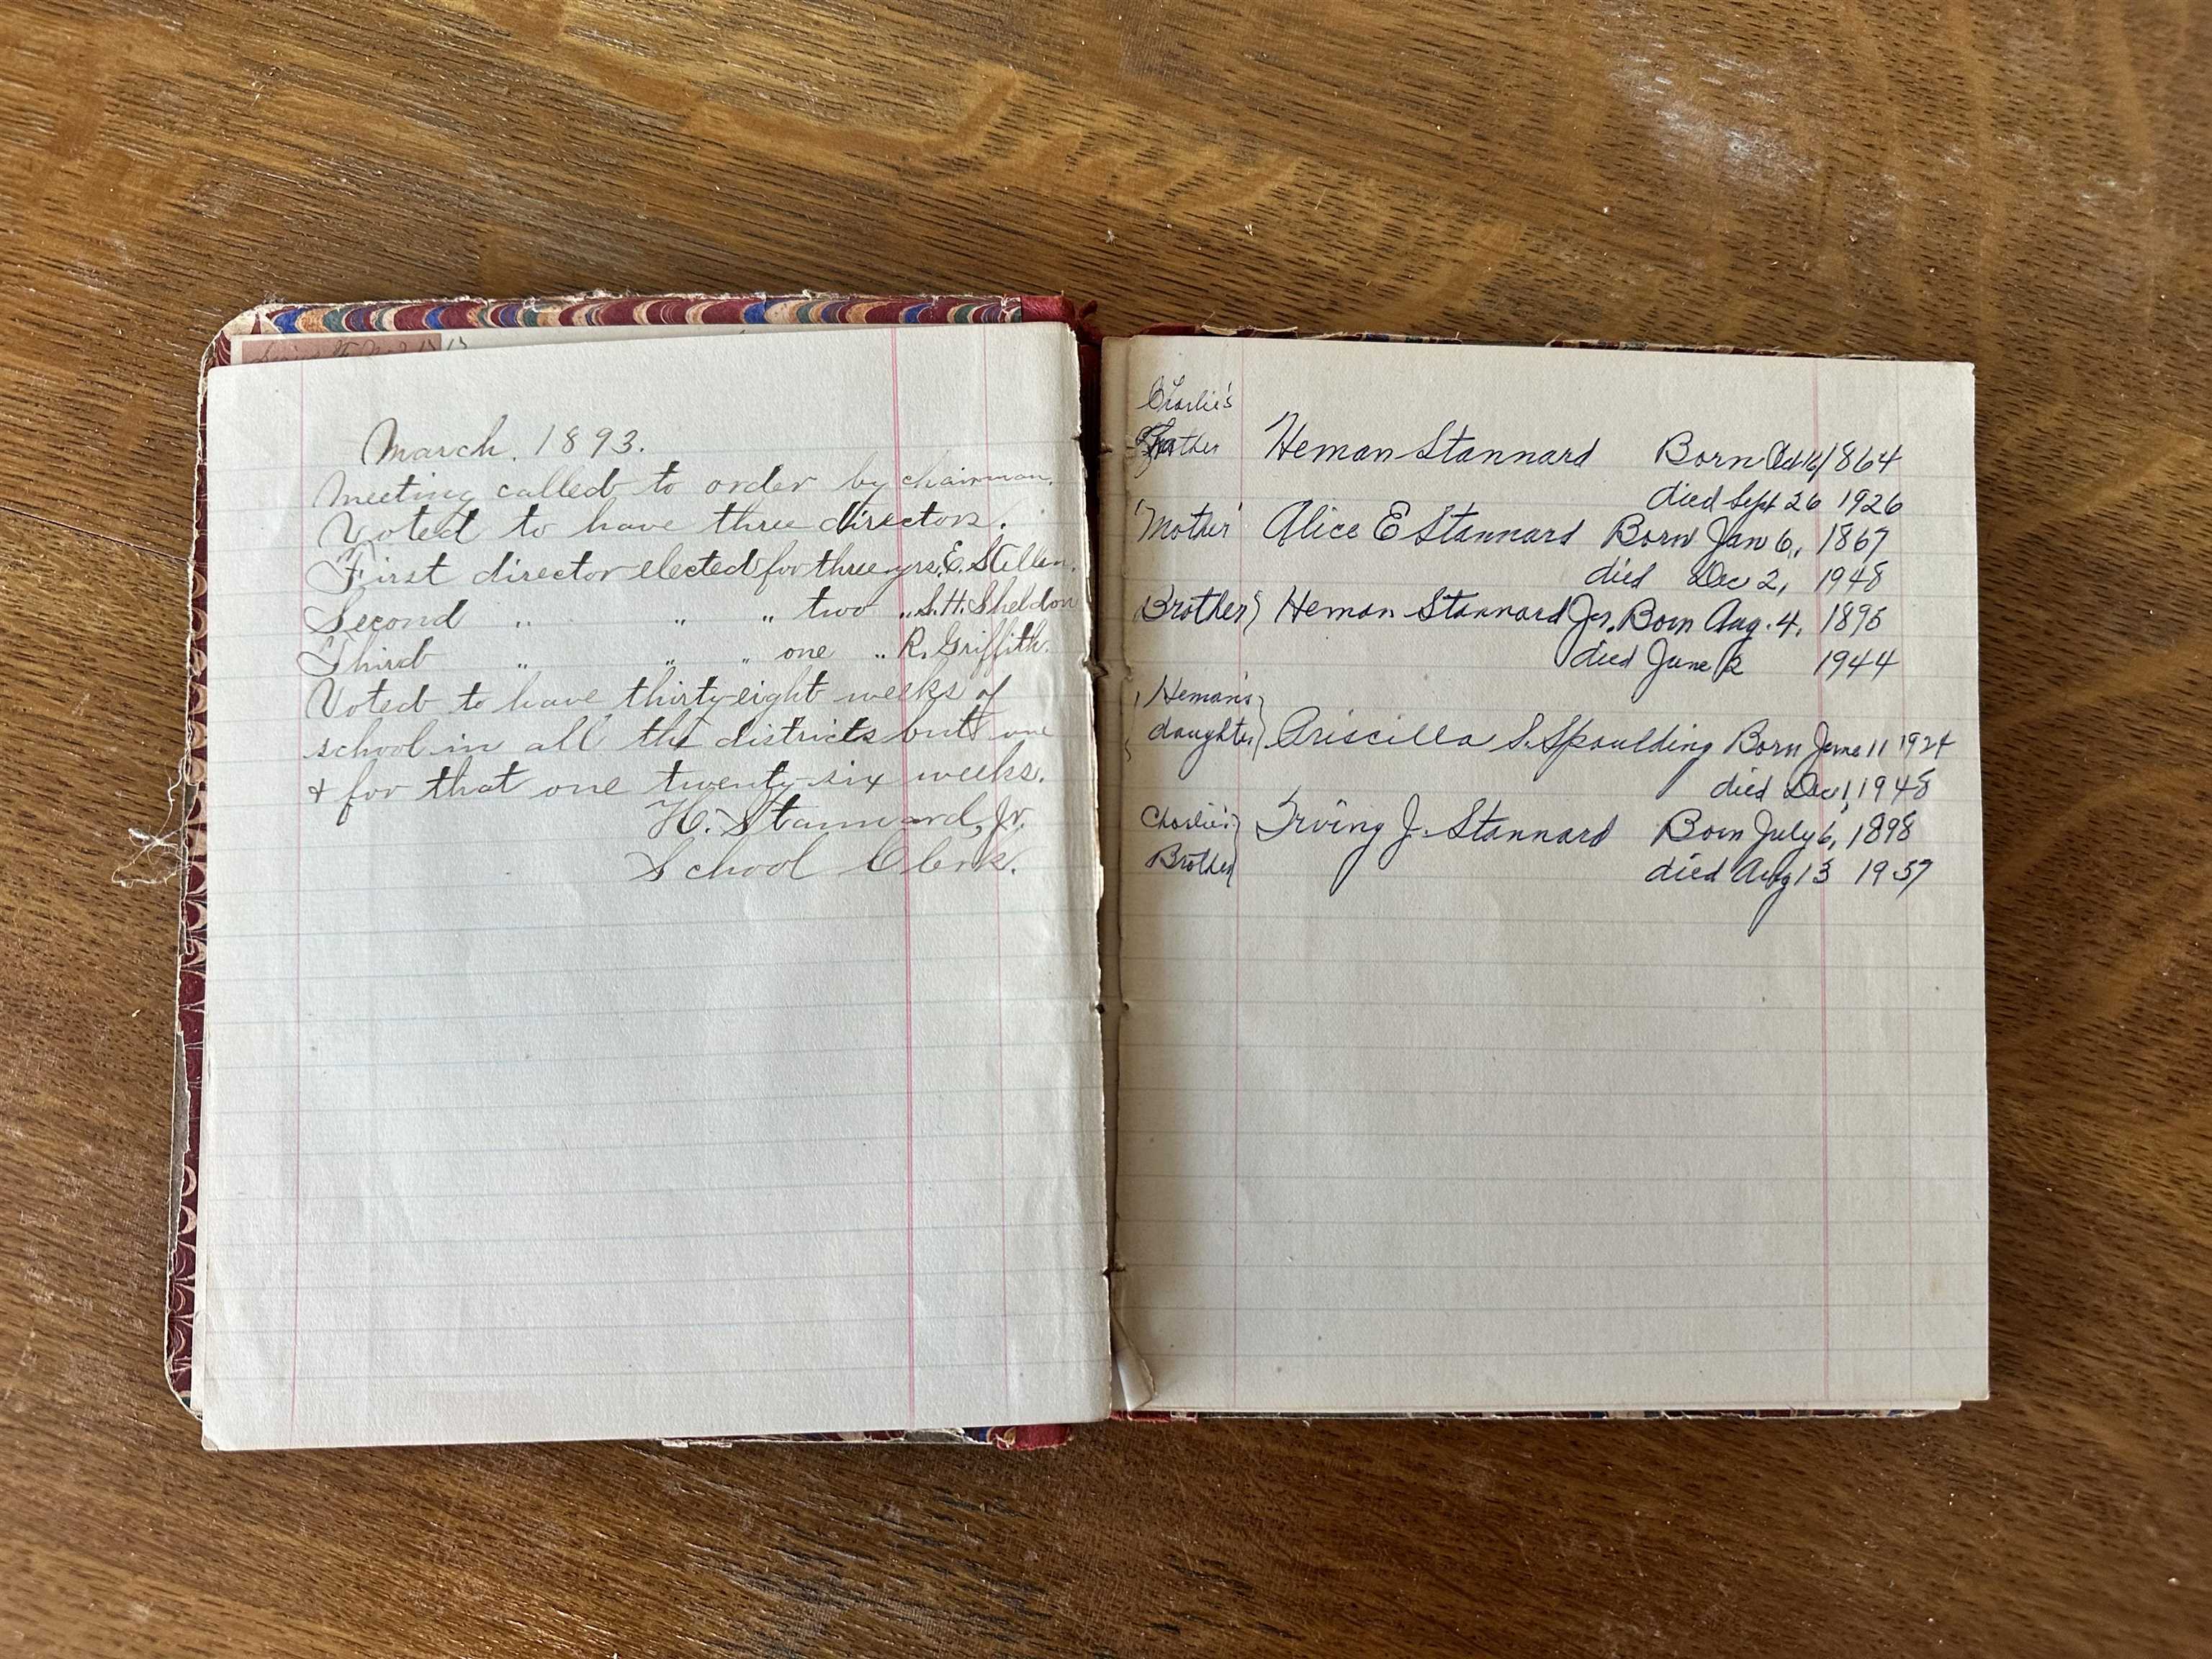 March. 1893.
Meeting called to order by chairman.
Voted to have three directors.
First director elected for three yrs. E.
Second " " " two " S. H. Sheldon
Third " " " one " R. Griffith.
Voted to have thirty-eight weeks of
school in all the districts but one
& for that one twenty-six weeks.
H. Stannard, Jr.
School Clerk.
Charlie's
Father Heman Stannard Born Oct 16 1864
died Sept 26 1926
"Mother" Alice E Stannard Born Jan 6, 1867
died Dec 2, 1948
Brother} Heman Stannard Jr. Born Aug. 4, 1895
died June 2 1944
Heman's
daughter} Priscilla S. Spaulding Born June 11 1924
died Dec 1, 1948
Charlie's} Irving J. Stannard Born July 6, 1898
Brother died Aug 13 1957